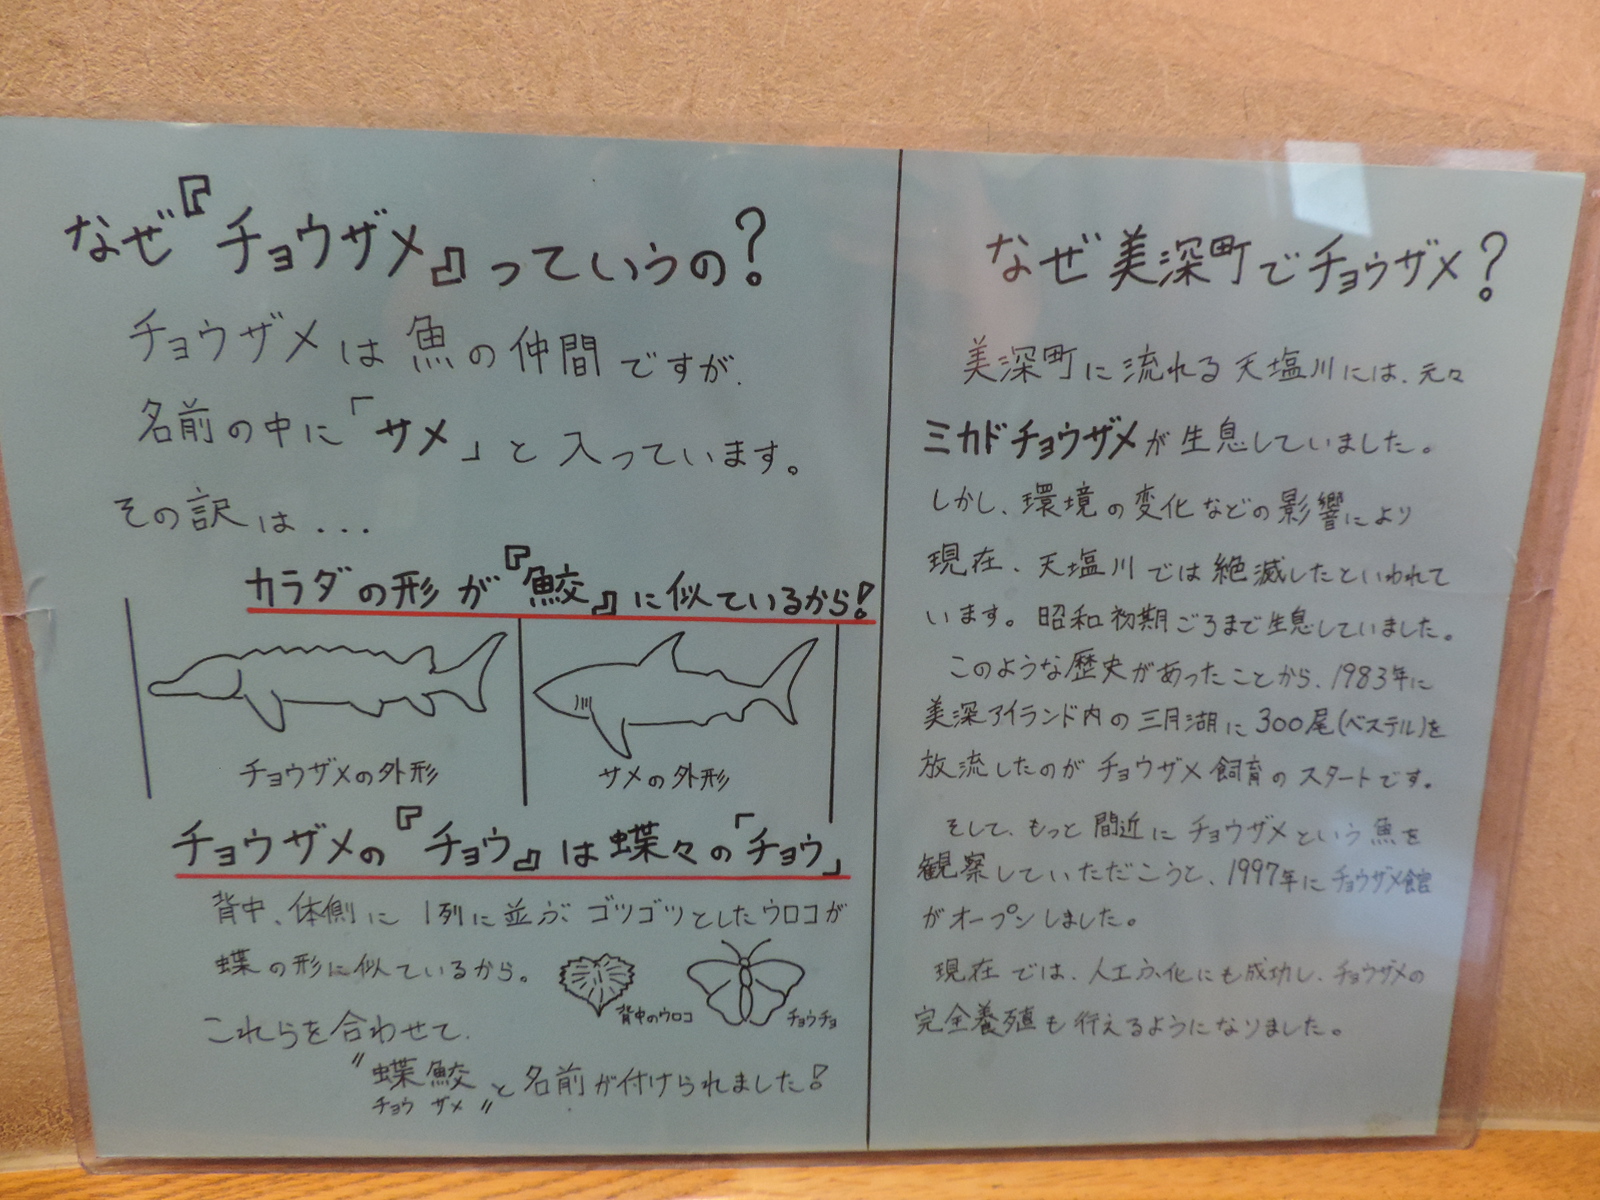 なぜ『チョウザメ』っていうの?
チョウザメは魚の仲間ですが、
名前の中に「サメ」と入っています。
その訳は...
カラダの形が『鮫』に似ているから!
チョウザメの外形
サメの外形
チョウザメの『チョウ』は蝶々の「チョウ」
背中、体側に1列に並ぶゴツゴツとしたウロコが
蝶の形に似ているから。
背中のウロコ
チョウチョ
これらを合わせて、
"蝶鮫"と名前が付けられました!
チョウ ザメ
なぜ美深町でチョウザメ?
美深町に流れる天塩川には、元々
ミカドチョウザメが生息していました。
しかし、環境の変化などの影響により
現在、天塩川では絶滅したといわれて
います。昭和初期ごろまで生息していました。
このような歴史があったことから、1983年に
美深アイランド内の三日月湖に300尾(ベステル)を
放流したのがチョウザメ飼育のスタートです。
そして、もっと間近にチョウザメという魚を
観察していただこうと、1997年にチョウザメ館
がオープンしました。
現在では、人工ふ化にも成功し、チョウザメの
完全養殖も行えるようになりました。